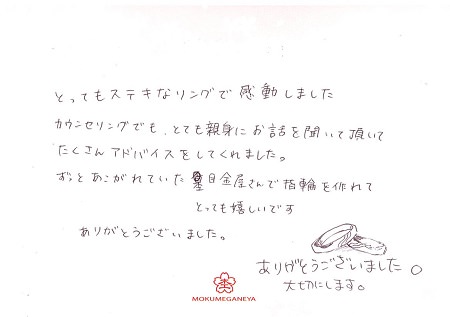 とってもステキなリングで感動しました
カウンセリングでも、とても親身にお話を聞いて頂いて
たくさんアドバイスをしてくれました。
ずっとあこがれていた杢目金屋さんで指輪を作れて
とっても嬉しいです
ありがとうございました。
ありがとうございました。
大切にします。
MOKUMEGANEYA